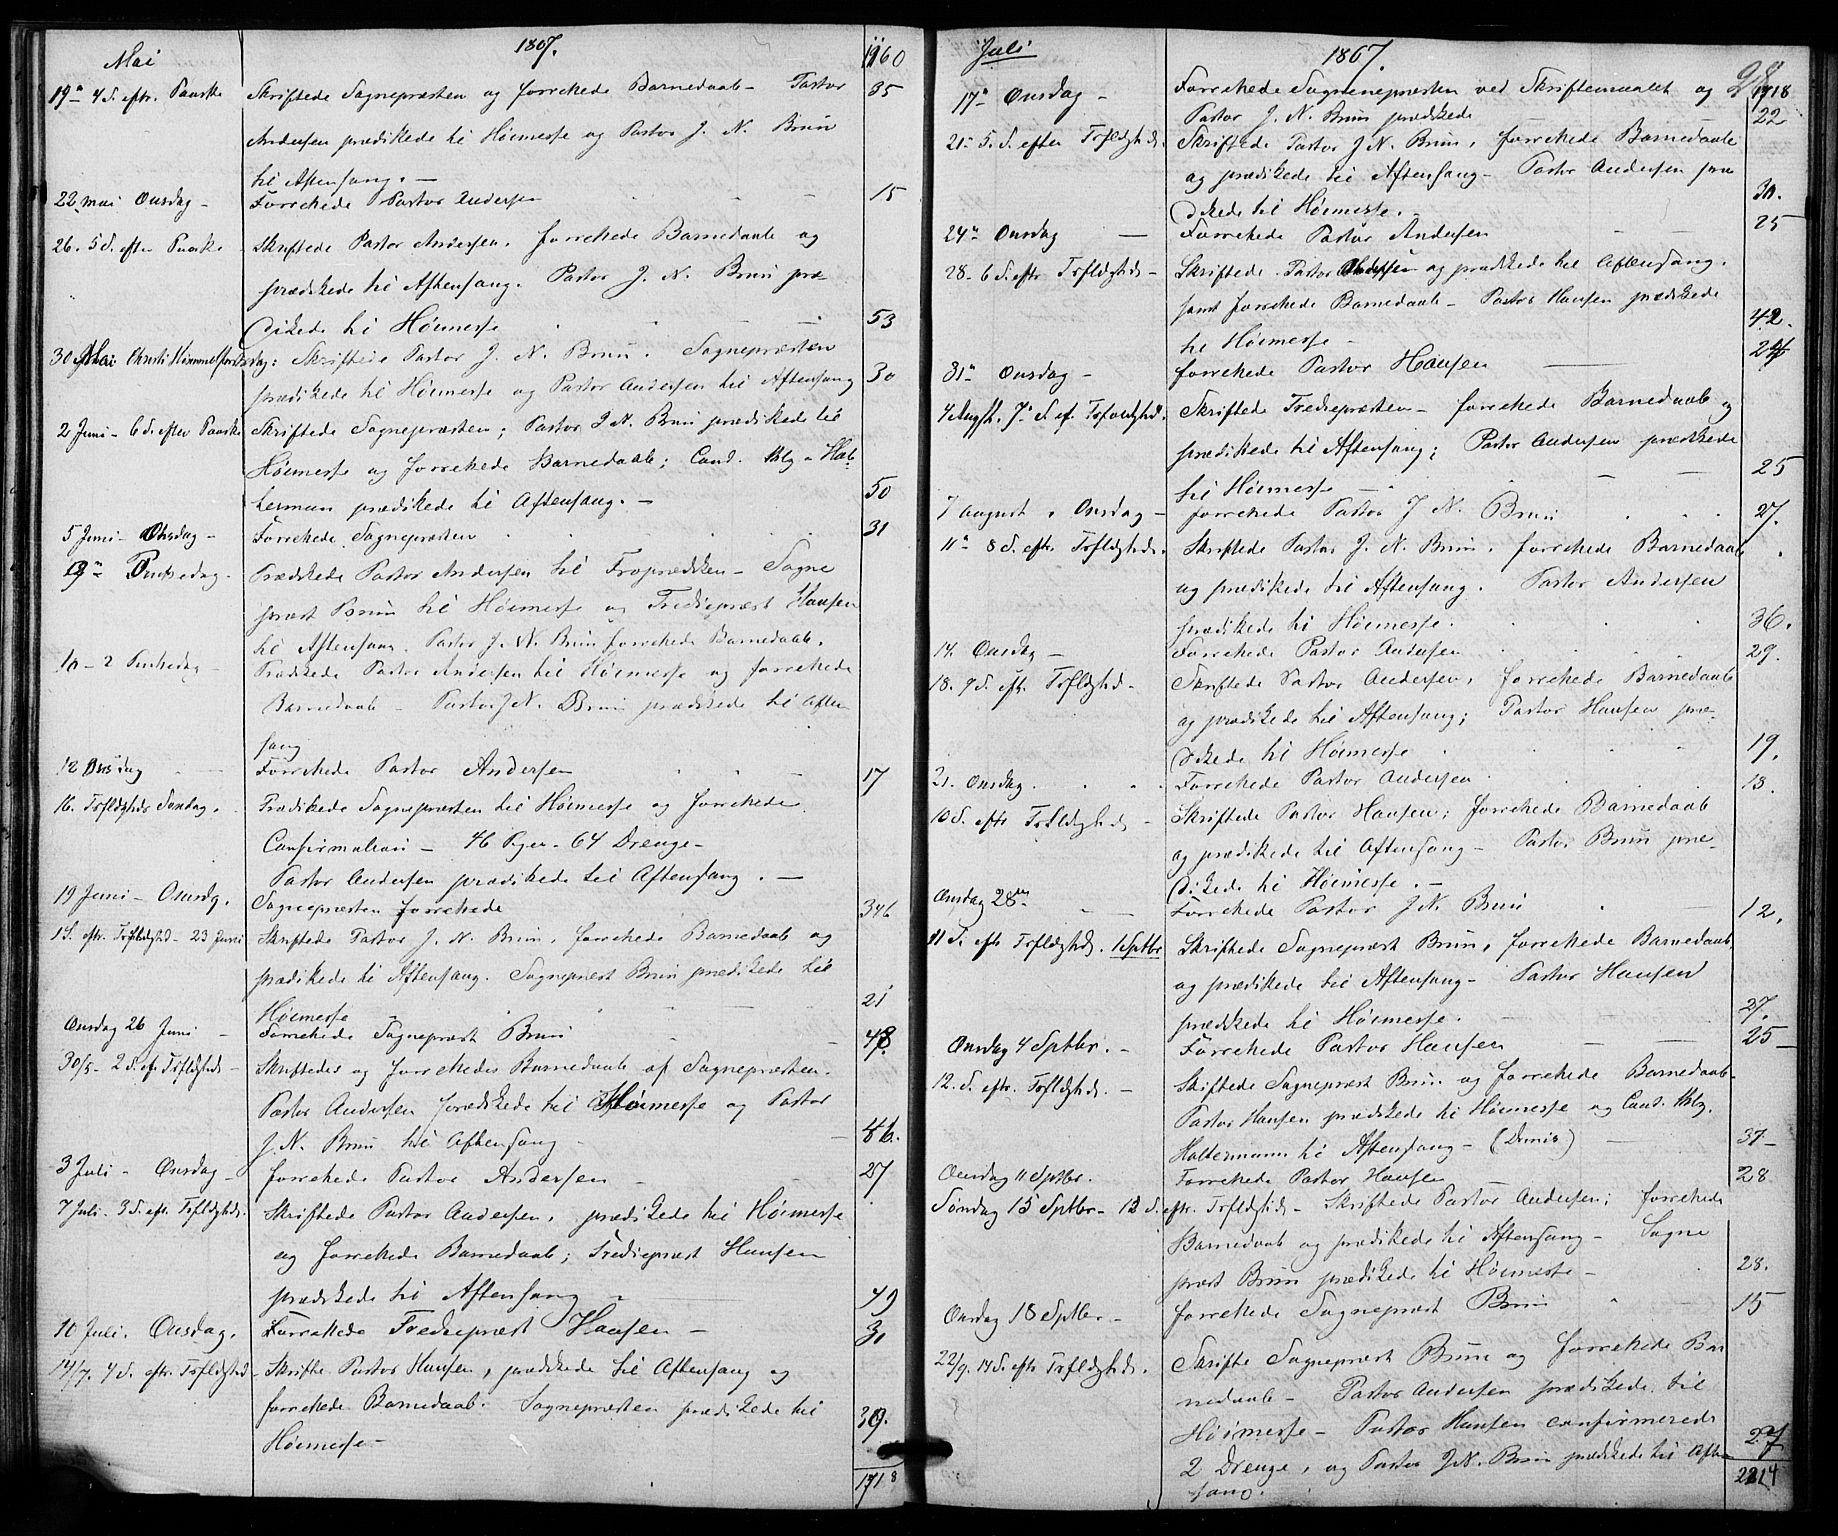 Mai 1867. 1160
19de 4 S. eftr. Paaske Skriftede Sognepræsten og forrettede Barnedaab - Pastor 35
Andersen prædikede til Høimesse og Pastor J. N. Brun
til Aftensang. -
22 mai Onsdag - Forrettede Pastor Andersen 15
26. 5 S. efter Paaske Skriftede Pastor Andersen, forrettede Barnedaab og
prædikede til Aftensang. Pastor J. N. Brun præ-
dikede til Høimesse 53
30 Mai Christi Himmelfartsdag: Skriftede Pastor J. N. Brun. Sognepræsten
prædikede til Høimesse og Pastor Andersen til Aftensang 30
2 Juni - 6 S. efter Paaske Skriftede Sognepræsten; Pastor J. N. Brun prædikede til
Høimesse og forrettede Barnedaab; Cand. Hal-
terman prædikede til Aftensang. - 50
5 Juni - Onsdag - Forrettede Sognepræsten 31
9de Pintsedag - Prædikede Pastor Andersen til Froprædiken - Sogne
præst Brun til Høimesse og Trediepræst Hansen
til Aftensang. Pastor J. N. Brun forrettede Barnedaab.
10 - 2 Pintsedag - Prædikede Pastor Andersen til Høimesse og forrettede
Barnedaab - Pastor J. N. Brun prædikede til Aften
sang
12 Onsdag Forrettede Pastor Andersen 17
16. Trfldgheds Søndag. Prædikede Sognepræsten til Høimesse og forrettede
Confirmation - 46 Piger - 64 Drenge -
Pastor Andersen prædikede til Aftensang. -
19 Juni - Onsdg. Sognepræsten forrettede 346
1 S. eftr. Trfldghed - 23 Juni Skriftede Pastor J. N. Brun, forrettede Barnedaab og
prædikede til Aftensang. Sognepræst Brun prædikede til
Høimesse 21
Onsdag 26 Juni - Forrettede Sognepræst Brun 48
30/5 - 2 S. eft Trfldgheds - Skriftedes og forrettedes Barnedaab af Sognepræsten.
Pastor Andersen prædikede til Høimesse og Pastor
J. N. Brun til Aftensang - 46.
3 Juli - Onsdag - forrettede Pastor Andersen 27
7 Juli. 3 S. eftr. Trfldgheds. Skriftede Pastor Andersen, prædikede til Høimesse
og forrettede Barnedaab; Trediepræst Hansen
prædikede til Aftensang - 49
10 Juli. Onsdag. Forrettede Trediepræst Hansen - 31
14/7. 4 S. eftr. Trfldghed - Skrifte Pastor Hansen, prædikede til Aftensang og
forrettede Barnedaab. Sognepræsten prædikede til
Høimesse - 39.
1718
Juli 1867. 98
17de Onsdag - Forrettede Sognepræsten ved Skriftemaalet og 1718
Pastor J. N. Brun prædikede 22
21 - 5. S. efter Trfldgheds. Skriftede Pastor J. N. Brun, forrettede Barnedaab
og prædikede til Aftensang - Pastor Andersen præ
dikede til Høimesse. 30.
24de Onsdag - Forrettede Pastor Andersen 25
28 - 6 S. eftr Trfldgheds - Skriftede Pastor Andersen og prædikede til Aftensang.
samt forrettede Barnedaab - Pastor Hansen prædikede
til Høimesse - 42.
31de Onsdag - forrettede Pastor Hansen 24
4 Augst. 7de S. ef. Trfoldghed. Skriftede Trediepræsten - forrettede Barnedaab og
prædikede til Aftensang; Pastor Andersen prædikede
til Høimesse - 25
7 august. Onsdag - forrettede Pastor J. N. Brun 27.
11te 8 S. eftr Trfldgheds. Skriftede Pastor J. N. Brun, forrettede Barnedaab
og prædikede til Aftensang. Pastor Andersen
prædikede til Høimesse. 36.
14. Onsdag - Forrettede Pastor Andersen 29.
18. 9 S. eft. Trfldghed - Skriftede Pastor Andersen, forrettede Barnedaab
og prædikede til Aftensang; Pastor Hansen præ-
dikede til Høimesse 19.
21. Onsdag. Forrettede Pastor Andersen 13.
10 S. eftr Trfldgheds - Skriftede Pastor Hansen; forrettede Barnedaab
og prædikede til Aftensang - Pastor Brun præ-
dikede til Høimesse. -
Onsdag 28de Forrettede Pastor J. N. Brun 12.
11 S. eftr Trfldgheds. 1 Septbr Skriftede Sognepræst Brun, forrettede Barnedaab
og prædikede til Aftensang - Pastor Hansen
prædikede til Høimesse. 37.
Onsdag 4 Septbr. - Forrettede Pastor Hansen 25 -
12. S. eftr. Trfldgheds. - Skriftede Sognepræst Brun og forrettede Barnedaab -
Pastor Hansen prædikede til Høimesse og Cand.
Haltermann til Aftensang - 37 -
Onsdag 11 Septbr. Forrettede Pastor Hansen 28
Søndag 15 Septbr - 13 S. eftr. Trfldghds - Skriftede Pastor Andersen; forrettede
Barnedaab og prædikede til Aftensang - Sogne
præst Brun prædikede til Høimesse - 28.
Onsdag 18 Septbr - forrettede Sognepræst Brun 15
22/9. 14 S. eftr Trfldgheds. Skrifte Sognepræst Brun og forrettede Bar
nedaab - Pastor Andersen prædikede til
Høimesse - Pastor Hansen confirmerede
2 Drenge, og Pastor J. N. Brun prædikede til Aften 27
sang. 2214